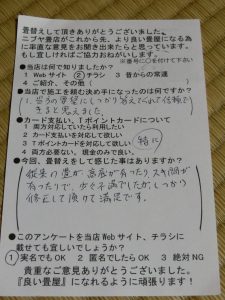 畳替えして頂きありがとうございました。
ニブヤ畳店がこれから先、より良い畳屋になる為
に率直な意見をお聞き出来たらと思っています。
もし宜しければご協力おねがいします。
※番号に○を付けて下さい
●当店は何で知りましたか?
1 Webサイト ②チラシ 3 昔からの常連
4 ご紹介、その他( )
●当店で施工を頼む決め手になったのは何ですか?
1、当方の要望にしっかり答えてくれて信頼で
きると思えました。
●カード支払い、Tポイントカードについて
1 両方対応していたら利用したい
2 カード支払いを対応して欲しい
3 Tポイントカードを対応して欲しい
4 両方必要ない。現金のみで良い。
特に
●今回、畳替えをして感じた事はありますか?
従来の畳が高低が有ったりスキ間が
有ったりで、少々不満でしたが、しっかり
修正して頂けて満足です。
●このアンケートを当店Webサイト、チラシに
載せても宜しいでしょうか?
①実名でもOK 2 匿名でしたらOK 3 絶対NG
貴重なご意見ありがとうございました。
『良い畳屋』になれるように頑張ります!